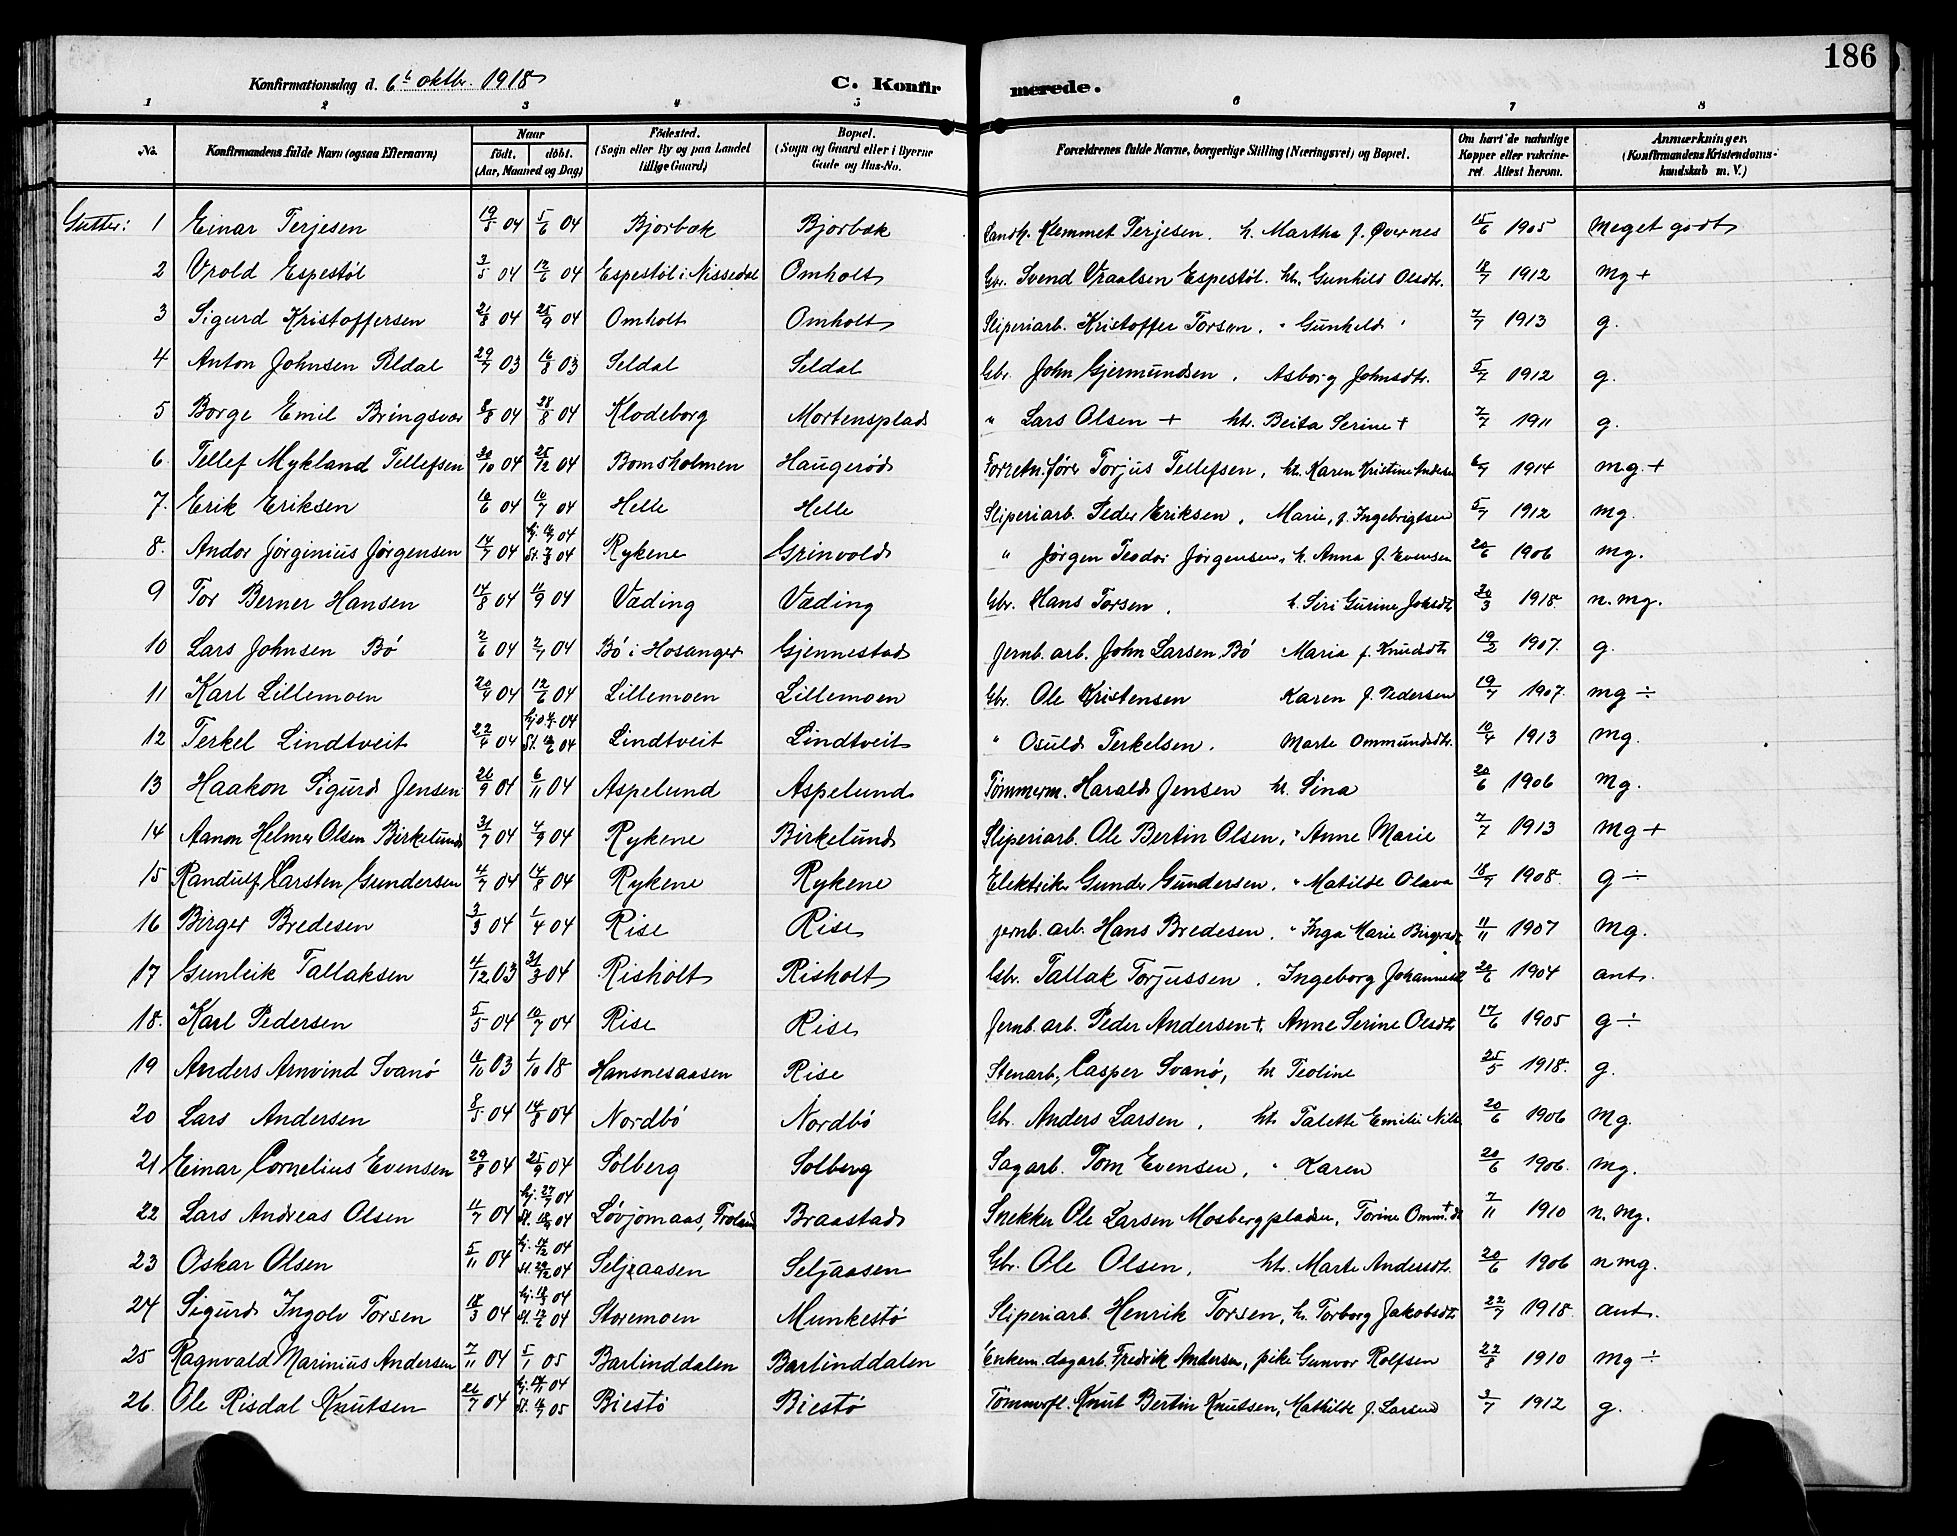 186
Konfirmationsdag d. 6te oktbr. 1918
C. Konfirmerede.
1 2 3 4 5 6 7 8
No. Konfirmandens fulde Navn (ogsaa Efternavn) Naar født. døbt. (Aar, Maaned og Dag) Fødested. (Sogn eller By og paa Landet tillige Gaard) Bopæl. (Sogn og Gaard eller i Byerne Gade og Hus-No. Forældrenes fulde Navne, borgerlige Stilling (Næringsvei) og Bopæl. Om havt de naturlige Kopper eller vaccineret. Attest herom. Anmærkninger. (Konfirmandens Kristendomskundskab m. V.)
Gutter: 1 Einar Terjesen 19/5 04 5/6 04 Bjorbæk Bjorbæk Landh. Klemmet Terjesen. h. Martha f. Øvernes 15/6 1905 Meget godt
2 Vrold Espestøl 3/5 04 12/6 04 Espestøl i Nissedal Omholt Gbr. Svend Vraalsen Espestøl. h. Gunhild Olsdtr. 18/7 1912 Mg +
3 Sigurd Kristoffersen 21/8 04 25/9 04 Omholt Omholt Sliperiarb. Kristoffer Torsen. " Gunhild 7/7 1913 g.
4 Anton Johnsen Seldal 29/7 03 16/8 03 Seldal Seldal Gbr. John Gjermundsen. Asborg Johnsdtr. 5/7 1912 g.
5 Borge Emil Bringsvær 8/8 04 28/8 04 Klodeborg Mortensplads " Lars Olsen + htr. Berta Serine + 7/7 1911 g.
6. Tellef Mykland Tellefsen 30/10 04 25/12 04 Bomsholmen Haugerød Forretn.fører Torjus Tellefsen, h. Karen Kristine Andersen 6/7 1914 mg. +
7. Erik Eriksen 10/6 04 10/7 04 Helle Helle Sliperiarb. Peder Eriksen. Marie, f. Ingebrigtsen 5/7 1912 mg.
8. Andor Jørginius Jørgensen 14/7 04 Rykene Grinvold " Jørgen Teodor Jørgensen, h. Anna f. Evensen 20/6 1906 mg.
9 Tor Berner Hansen 14/8 04 11/9 04 Væding Væding Gbr. Hans Torsen. h. Siri Gurine 30/3 1918. n. mg.
10 Lars Johnsen Bø 2/6 04 2/7 04 Bø i Hosanger Gjennestad Jernb. arb. John Larsen Bø Maria f. Knudsdtr 19/2 1907. g.
11 Karl Lillemoen 20/4 04 12/6 04 Lillemoen Lillemoen Gbr. Ole Kristensen Karen f. Pedersen 19/7 1907. mg ÷
12 Terkel Lindtveit 22/4 04 Lindtveit Lindtveit " Osuld Terkelsen. Marte Ommundsdtr. 10/4 1913 mg.
13 Haakon Sigurd Jensen 26/9 04 6/11 04 Aspelund Aspelund Tømmerm. Harald Jensen h. Sina 20/6 1906 Mg.
14 Aanon Helmer Olsen Birkelund 31/7 04 4/9 04 Rykene Birkelund Sliperiarb. Ole Bertin Olsen, " Anne Marie 7/7 1913 mg +
15 Randulf Carsten Gundersen 4/7 04 14/8 04 Rykene Rykene Elektriker Gunder Gundersen. " Matilde Olava 18/7 1908. g ÷
16 Birger Bredesen 3/3 04 1/4 04 Rise Rise Jernb. arb. Hans Bredesen. " Inga Marie 11/11 1907 Mg.
17 Gunleik Tallaksen 4/12 03 31/3 04 Risholt Risholt Gbr. Tallak Torjussen. Ingeborg 20/6 1904 ant.
18. Karl Pedersen 5/5 04 10/7 04 Rise Rise Jernb. arb. Peder Andersen +. Anne Serine Olsdtr 17/6 1905 g ÷
19 Anders Arnvind Svanø 4/10 03 1/10 18 Hansnesaasen Rise Stenarb. Casper Svanø, h. Teoline 25/5 1918. g.
20 Lars Andersen 8/5 04 14/8 04 Nordbø Nordbø Gbr. Anders Larsen. h. Talette Emilie 20/6 1906 Mg.
21 Einar Cornelius Evensen 29/8 04 25/9 04 Solberg Solberg Sagarb. Tom Evensen. " Karen 20/6 1906. mg.
22 Lars Andreas Olsen 11/7 04 Løvjomaas, Froland Braastad Snekker Ole Larsen Mosbergpladsen, Torine 7/11 1910 n. mg.
23 Oskar Olsen 5/11 04 Seljaasen Seljaasen Gbr. Ole Olsen. htr. Marte Andersdtr. 20/6 1906 n mg.
24 Sigurd Ingolv Torsen 18/3 04 Storemoen Munkestø Sliperiarb. Henrik Torsen, h. Torborg Jakobsdtr 22/7 1918. ant.
25 Ragnvald Marinius Andersen 7/11 04 5/1 05 Barlinddalen Barlinddalen Enkem. dagarb. Fredrik Andersen, pike Gunvor Rolfsen 22/8 1910 mg ÷
26. Ole Risdal Knutsen 26/7 04 Biestø Biestø Tømmerfl. Knut Bertin Knutsen, Mathilde f. Larsen 3/7 1912 g.